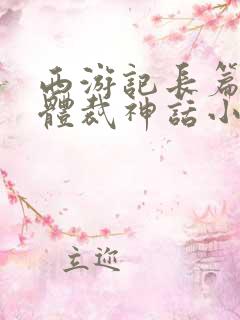 西游記長篇
體裁神話小
立迎